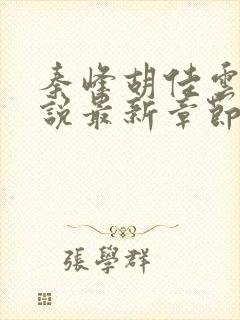 秦峰胡佳雲
說最新章節
張學群